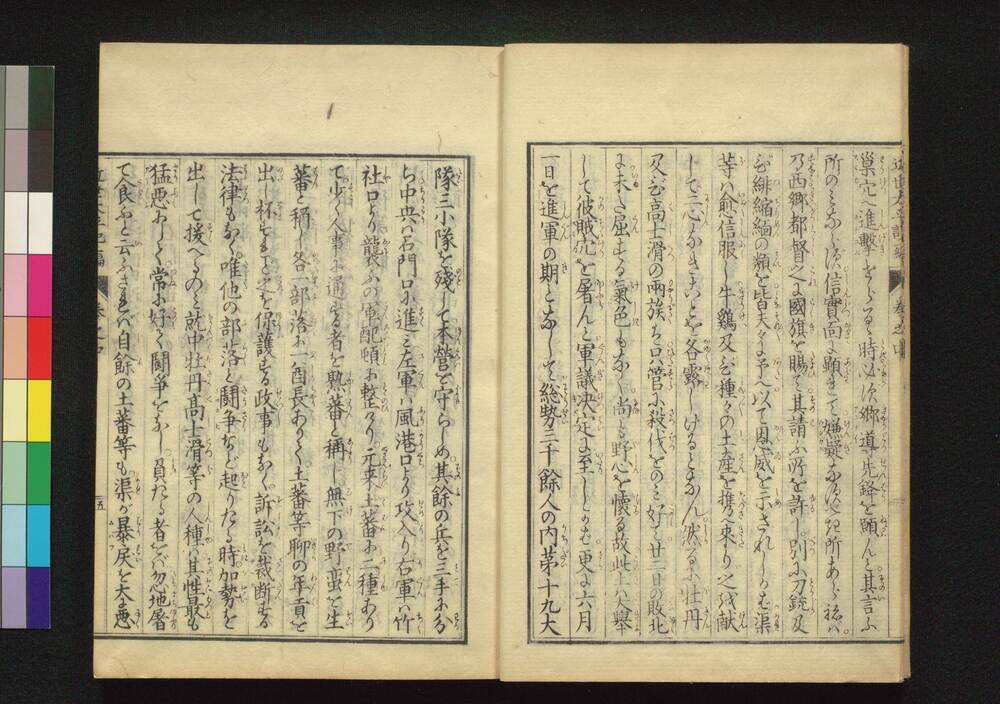 巣穴へ進撃をらるゝ時必ず郷導先鋒を願んと其言ふ
所のみならず信實面に顕まこと嫌疑なすべき所あらねば
乃西郷都督之に國旗を賜て其請ふ所を許し別に刀銃及
び緋縮緬の類を皆夫々に与へ以て恩威を示されしかば渠
等は愈信服し牛鷄及び種々の土産を携へ来り之を献
じて二心なきことを各露しけるとなん然るに牡丹
及び高士滑の両族ち只管に殺伐をのみ好み廿二日の敗北
に未た屈する氣色もなく尚も野心を懐る故此上は大擧
して彼賊穴を屠んと軍議決定に至しかば更に六月
一日を進軍の期となして総勢三千餘人の内第十九大
隊三小隊を残して本營を守らしめ其餘の兵を三手に分
ち中央は石門口に進み左軍は風港口より攻入り右軍は竹
社口より襲ふの軍配頓に整へり元来土蕃に二種あり
て少く人事に通ずる者を熟蕃と稱し無下の野蛮を生
蕃と稱し各部落に一酋長ありて土蕃等聊の年貢を
出し杯すれど之を保護する政事もなく訴訟を裁断する
法律もなく唯他の部落と闘争など起りたる時加勢を
出して援くるのみ就中牡丹高士滑等の人種は其性最も
猛悪にして常に好て闘争をなし負たる者をば忽地屠
て食ふと云ふされば自餘の土蕃等も渠が暴戻を大に悪